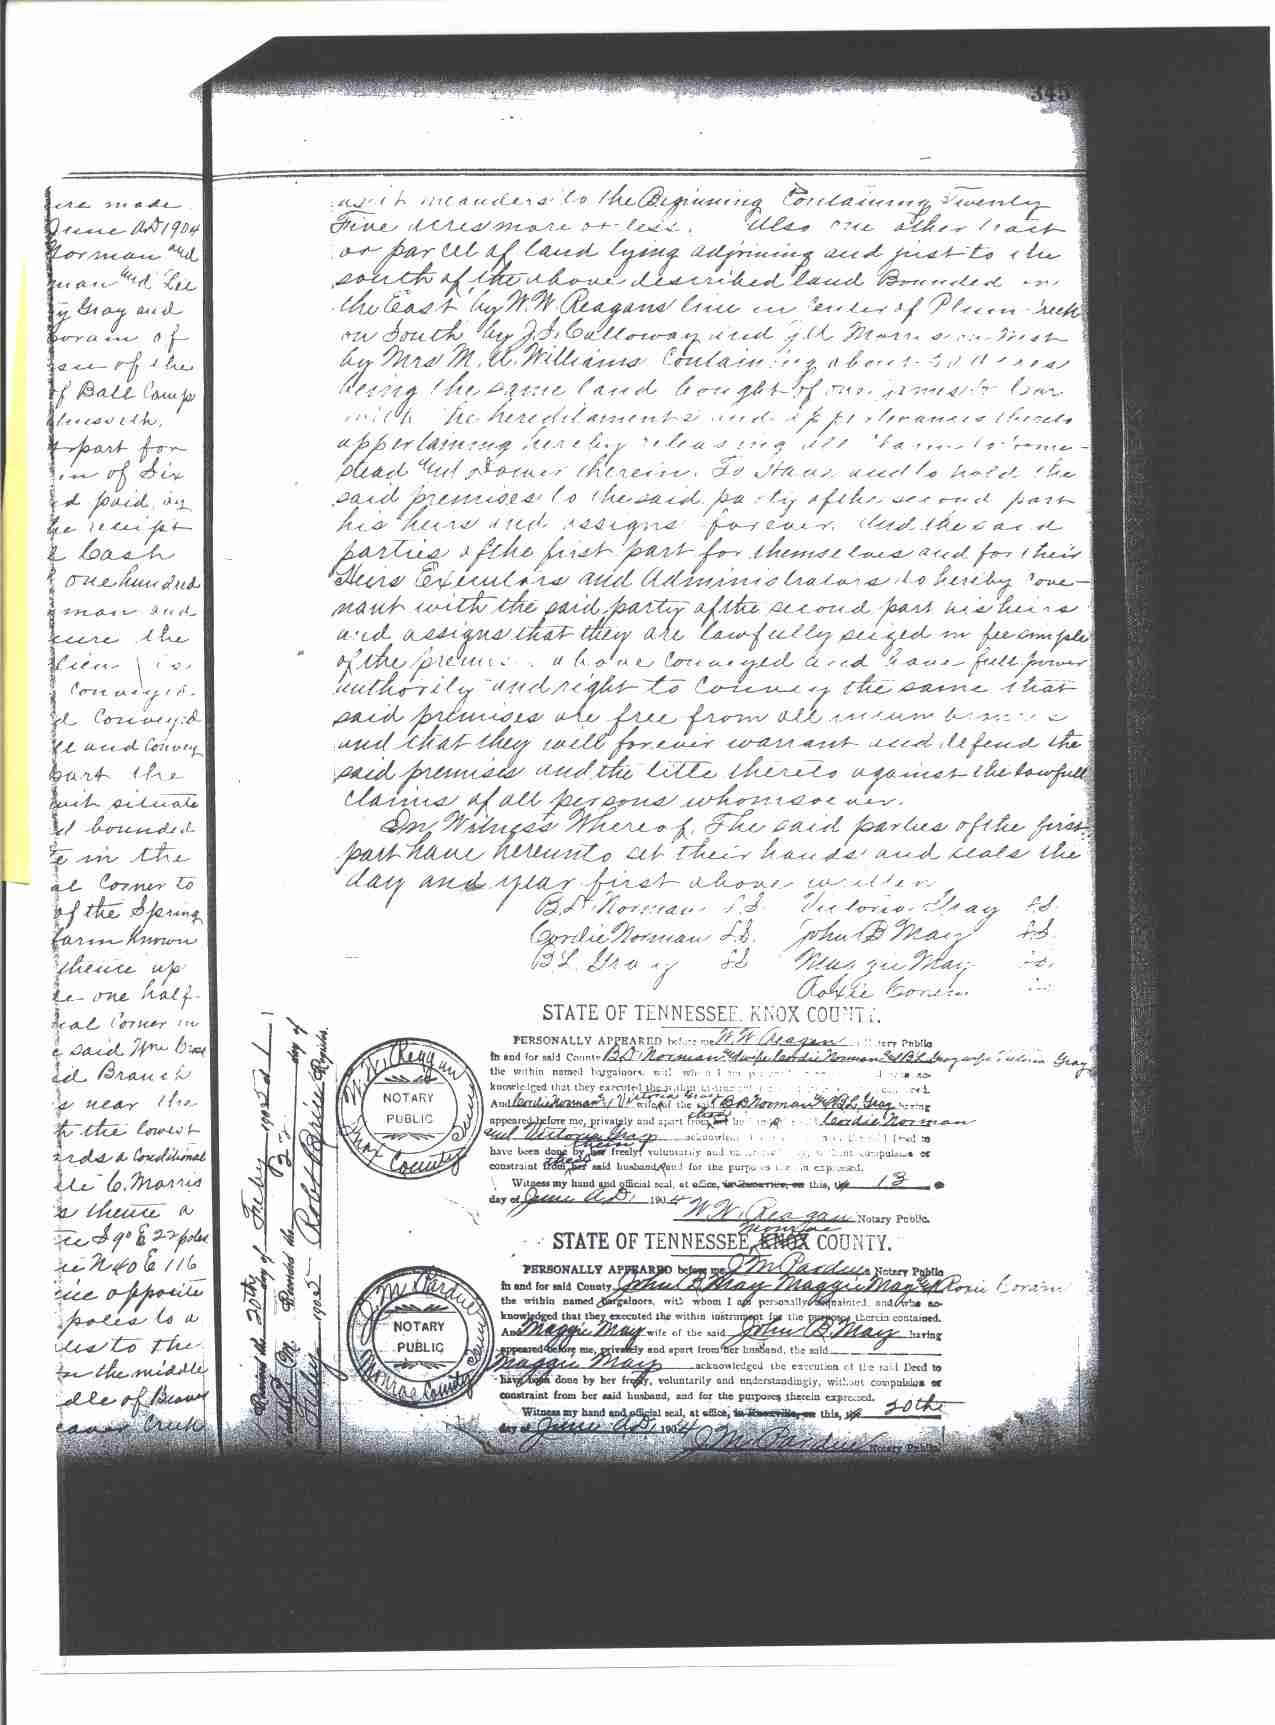 345
ere made
June AD 1904
Norman and
man and Lee
y Gray and
oram of
of the
of Ball Camp
part for
in of Six
d paid
he receipt
Cash
one hundred
man and
cure the
lien is
Convey
d Conveyed
ll and Convey
part the
situate
d bounded
in the
al Corner to
of the Spring
farm known
thence up
one half
al Corner in
said Wm
id Branch
s near the
the lowest
rds a Conditional
C. Morris
s thence a
S 90 E 22 poles
N 40 E 116
opposite
poles to a
to the
the middle
dle of Beaver
eaver Creek
as it meanders to the Beginning Containing Twenty
Five acres more or less. Also one other tract
or parcel of land lying adjoining and just to the
south of the above described land Bounded on
the East by W.W. Reagans line in Center of Plum Creek
on South by J.S. Calloway and Morris on West
by Mrs M. A. Williams Containing about acres
being the same land bought of
with the hereditaments and appurtenances thereto
appertaining hereby releasing all claims to home-
stead and Dower therein. To Have and to hold the
said premises to the said party of the second part
his heirs and assigns forever. And the said
parties of the first part for themselves and for their
Heirs Executors and Administrators do hereby cove-
nant with the said party of the second part his heirs
and assigns that they are lawfully seized in fee simple
of the premises above conveyed and have full power
authority and right to Convey the same that
said premises are free from all incumbrances
and that they will forever warrant and defend the
said premises and the title thereto against the lawfull
claims of all persons whomsoever.
In Witness Whereof. The said parties of the first
part have hereunto set their hands and seals the
day and year first above written
B.D. Norman L.S. Victoria Gray L.S.
Cordie Norman L.S. John B May L.S.
B L. Gray LS Maggie May
Roxie Coram
STATE OF TENNESSEE, KNOX COUNTY.
PERSONALLY APPEARED before me W.W. Reagan Notary Public
in and for said County B.D. Norman & wife Cordie Norman and B.L. Gray wife Victoria Gray
the within named bargainors, with whom I am
knowledged that they executed the within instrument
And Cordie Norman & Victoria Gray wife of the said B.D. Norman & B.L. Gray having
appeared before me, privately and apart from Cordie Norman
and Victoria Gray acknowledged said Deed to
have been done by their freely, voluntarily and without compulsion or
constraint from their said husband, and for the purposes therein expressed.
Witness my hand and official seal, at office, in Knoxville, on this, 13
day of June A.D. 1904
W.W. Reagan Notary Public.
W.W. Reagan
NOTARY
PUBLIC
Knox County
STATE OF TENNESSEE, Monroe KNOX COUNTY.
PERSONALLY APPEARED before me J.M. Pardue Notary Public
in and for said County John B Gray Maggie May & Roxie Coram
the within named bargainors, with whom I am personally acquainted, and who ac-
knowledged that they executed the within instrument for the purposes therein contained.
And Maggie May wife of the said John B. May having
appeared before me, privately and apart from her husband, the said
Maggie May acknowledged the execution of the said Deed to
have been done by her freely, voluntarily and understandingly, without compulsion or
constraint from her said husband, and for the purposes therein expressed.
Witness my hand and official seal, at office, in Knoxville, on this, 20th
day of June A.D. 1904
J.M. Pardue Notary Public.
J.M. Pardue
NOTARY
PUBLIC
Monroe County
20th day of Feby 1905
M. Received the day of
Feby 1905 Register.